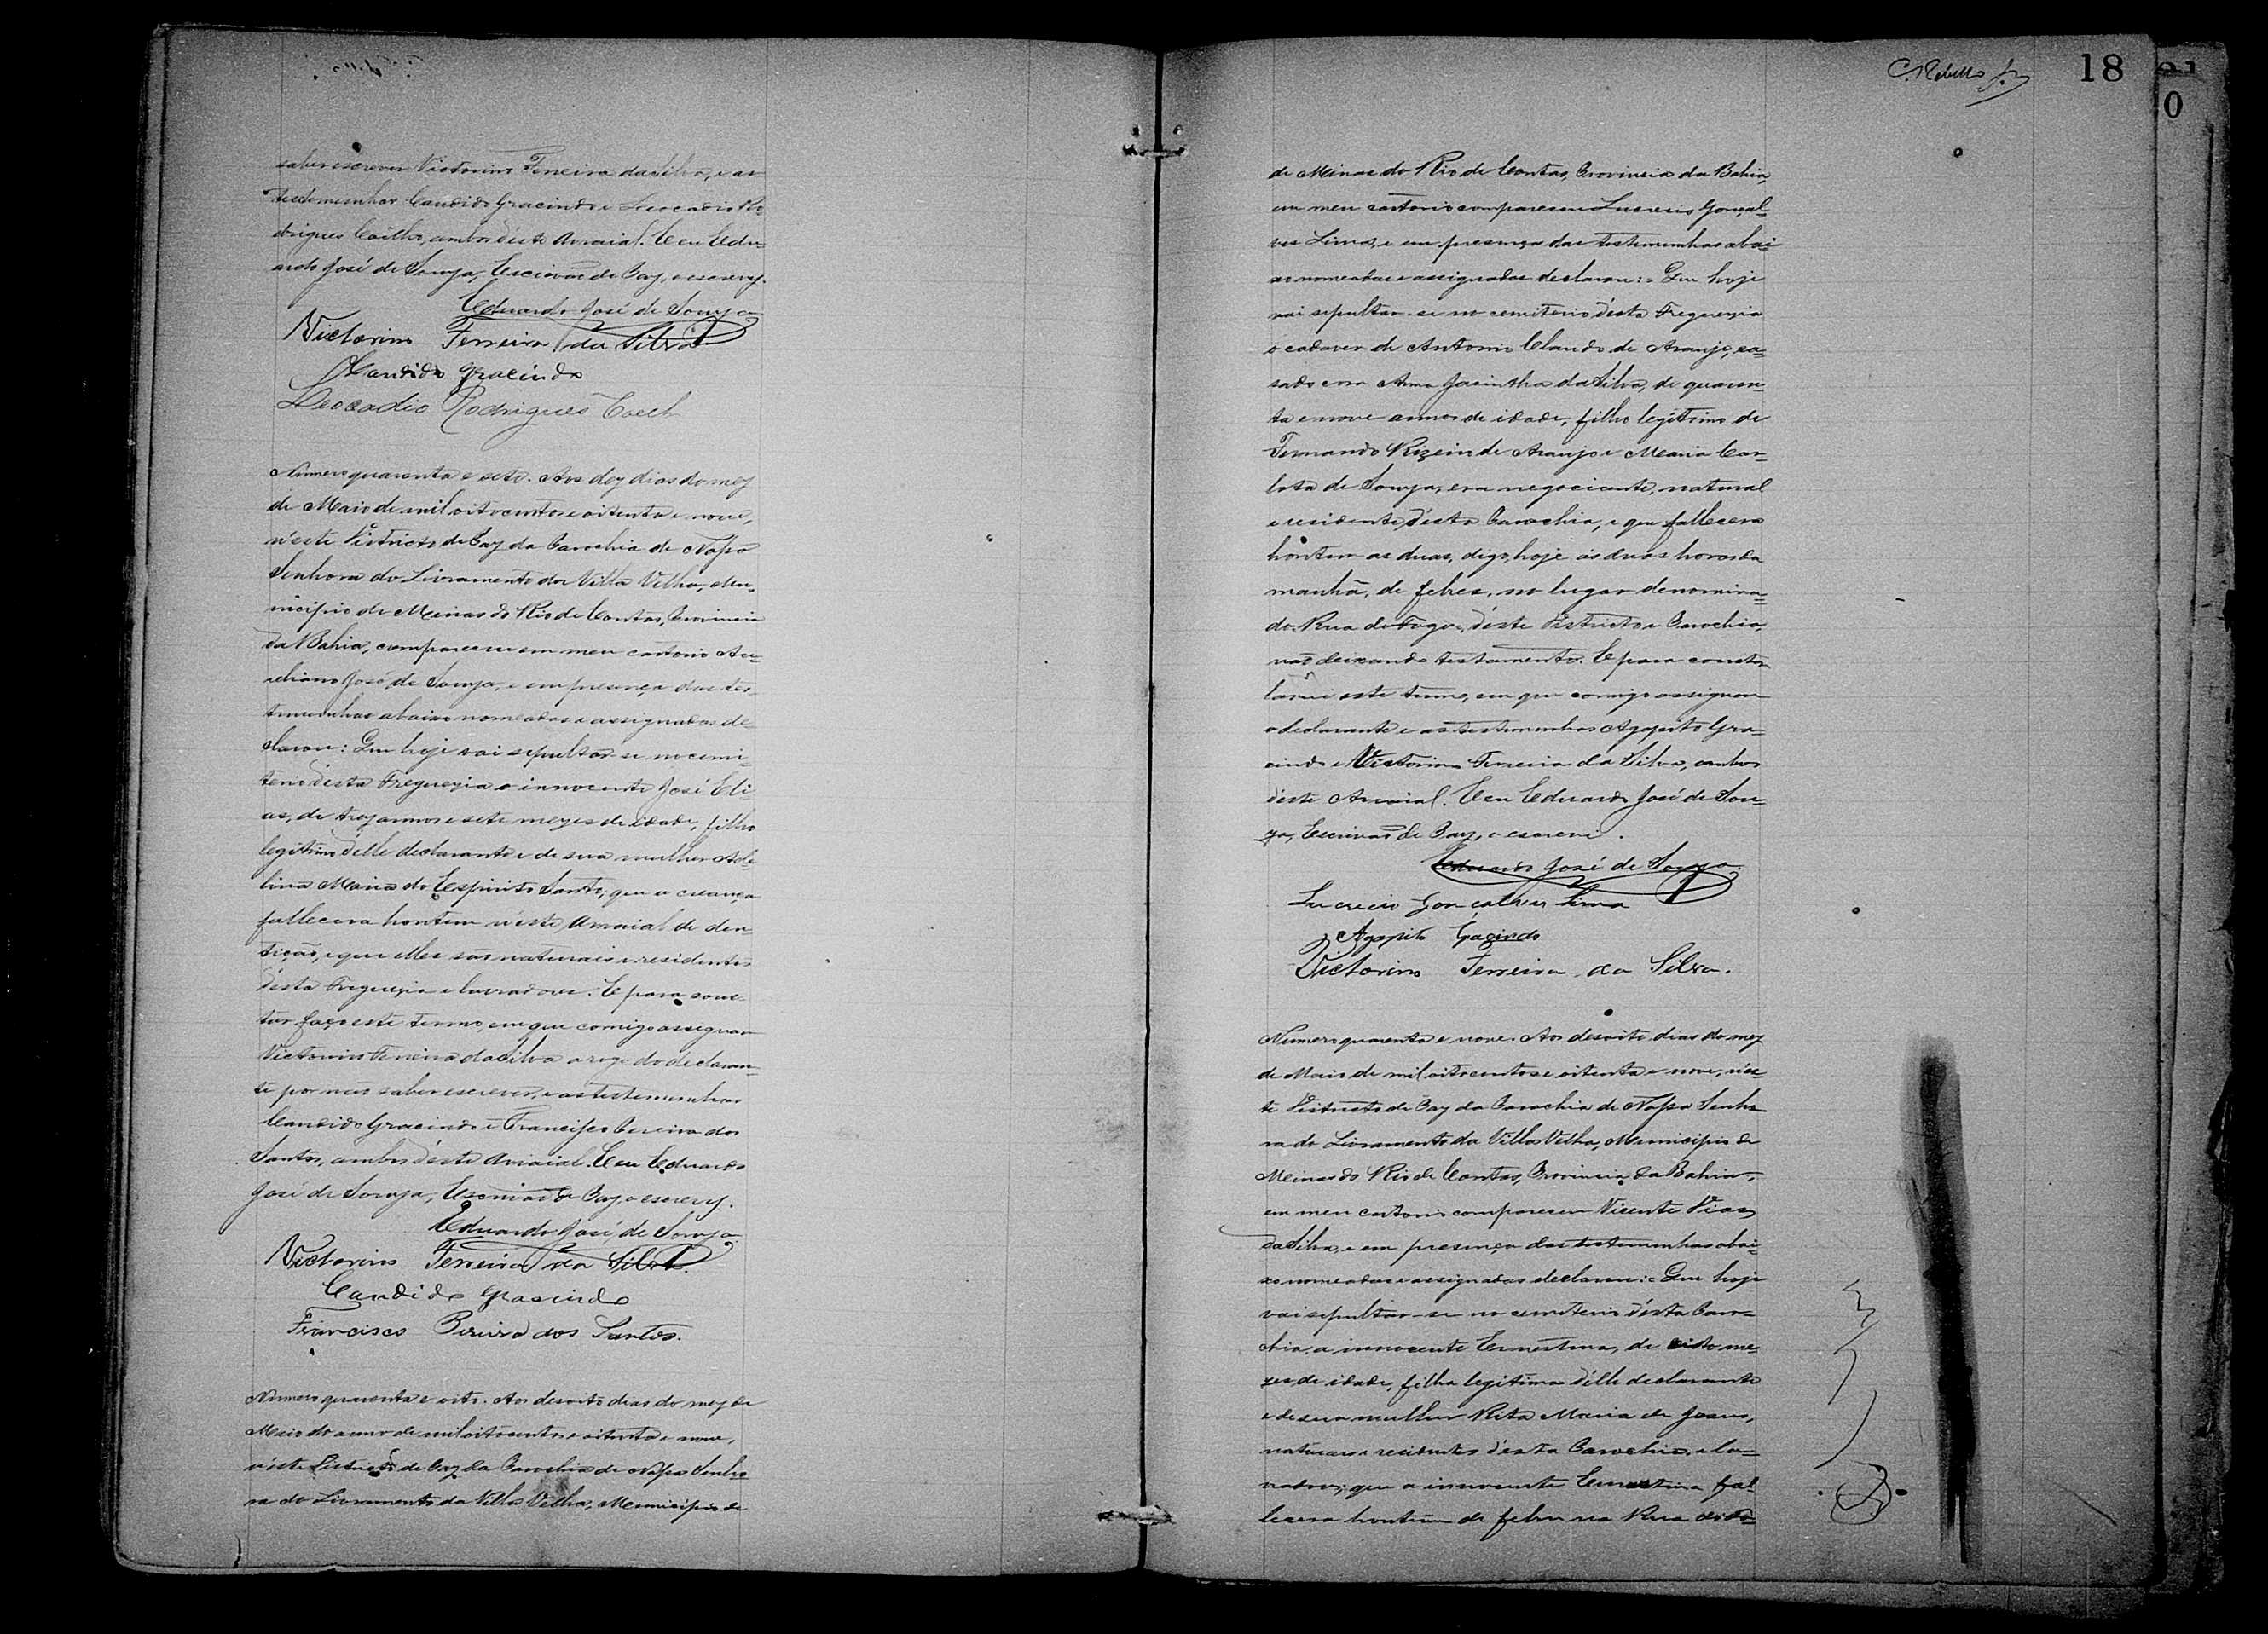 saber escrever Victorino Ferreira da Silva, e as
testemunhas Candido Gracindo e Leocadio Ro-
drigues Coelho, ambos d'este Arraial. E eu Edu-
ardo José de Souza, Escrivão de Paz, o escrevy.
Eduardo José de Souza
Victorino Ferreira da Silva
Candido Gracindo
Leocadio Rodrigues Coelh
Numero quarenta e sete. Aos dez dias do mez
de Maio de mil oitocentos e oitenta e nove,
n'este Districto de Paz da Parochia de Nossa
Senhora do Livramento da Villa Velha, Mu-
nicipio de Minas do Rio de Contas, Provincia
da Bahia, compareceu em meu cartorio Au-
reliano José de Souza, e em presença das tes-
temunhas abaixo nomeadas e assignadas de-
clarou: Que hoje vai sepultar-se no cemi-
terio d'esta Freguezia o innocente José Eli-
as, de trez annos e sete mezes de idade, filho
legitimo d'elle declarante e de sua mulher Ade-
lina Maria do Espirito Santo; que a creança
fallecera hontem n'este Arraial de den-
tição, e que elles são naturais e residentes
d'esta Freguezia e lavradores. E para cons-
tar faço este termo, em que comigo assignão
Victorino Ferreira da Silva a rogo do declaran-
te por não saber escrever, e as testemunhas
Candido Gracindo e Francisco Pereira dos
Santos, ambos d'este Arraial. E eu Eduardo
José de Souza, Escrivão de Paz, o escrevy.
Eduardo José de Souza
Victorino Ferreira da Silva.
Candido Gracindo
Francisco Pereira dos Santos.
Numero quarenta e oito. Aos desoito dias do mez de
Maio do anno de mil oitocentos e oitenta e nove,
n'este Districto de Paz da Parochia de Nossa Senho-
ra do Livramento da Villa Velha, Municipio de
C. Rebello Jr.
18
0
de Minas do Rio de Contas, Provincia da Bahia,
em meu cartorio compareceu Lucrecio Gonçal-
ves Lima, e em presença das testemunhas abai-
xo nomeadas e assignadas declarou:- Que hoje
vai sepultar-se no cemiterio d'esta Freguezia
o cadaver de Antonio Claudo de Araujo, ca-
sado com Anna Jacintha da Silva, de quaren-
ta e nove annos de idade, filho legitimo de
Fernando de Araujo e Maria Car-
lota de Souza, era negociante, natural
e residente d'esta Parochia, e que fallecera
hontem as duas, digo, hoje ás duas horas da
manhã, de febres, no lugar denomina-
do Rua do Fogo, d'este Districto e Parochia,
não deixando testamento. E para constar
lavrei este termo, em que comigo assignão
o declarante e as testemunhas Agapito Gra-
cindo e Victorino Ferreira da Silva, ambos
d'este Arraial. E eu Eduardo José de Sou-
za, Escrivão de Paz, o escrevi.
Eduardo José de Souza
Lucrecio Gonçalves Lima
Agapito Gacindo
Victorino Ferreira da Silva.
Numero quarenta e nove. Aos desoito dias do mez
de Maio de mil oitocentos e oitenta e nove, n'es-
te Districto de Paz da Parochia de Nossa Senho-
ra do Livramento da Villa Velha, Municipio de
Minas do Rio de Contas, Provincia da Bahia,
em meu cartorio compareceu Vicente Dias
da Silva, e em presença das testemunhas abai-
xo nomeadas e assignadas declarou:- Que hoje
vai sepultar-se no cemiterio d'esta Paro-
chia, a innocente Ernestina, de oito me-
zes de idade, filha legitima d'elle declarante
e de sua mulher Rita Maria de Jesus,
naturaes e residentes d'esta Parochia, e la-
vradores; que a innocente Ernestina fal-
lecera hontem de febre na Rua